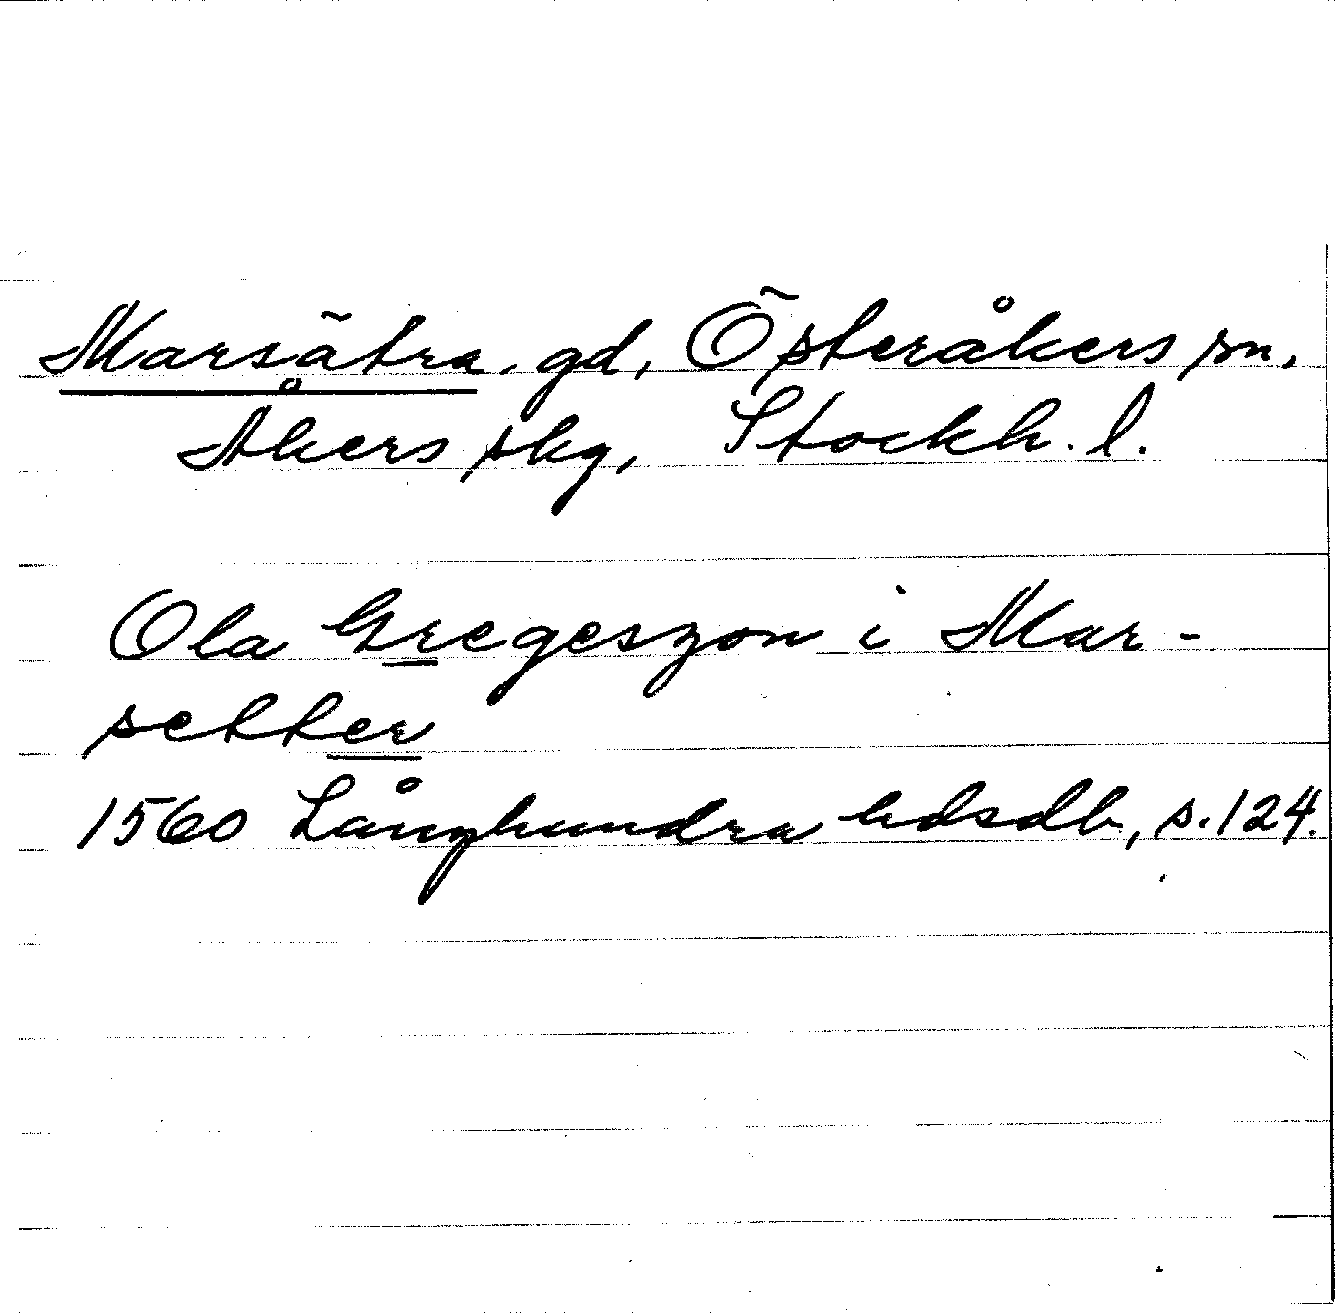 Marsätra, gd, Österåkers sn,
Åkers skg, Stockh. l.
Ola Gregeszon i Mar-
setter
1560 Långhundra hdsdb, s. 124.